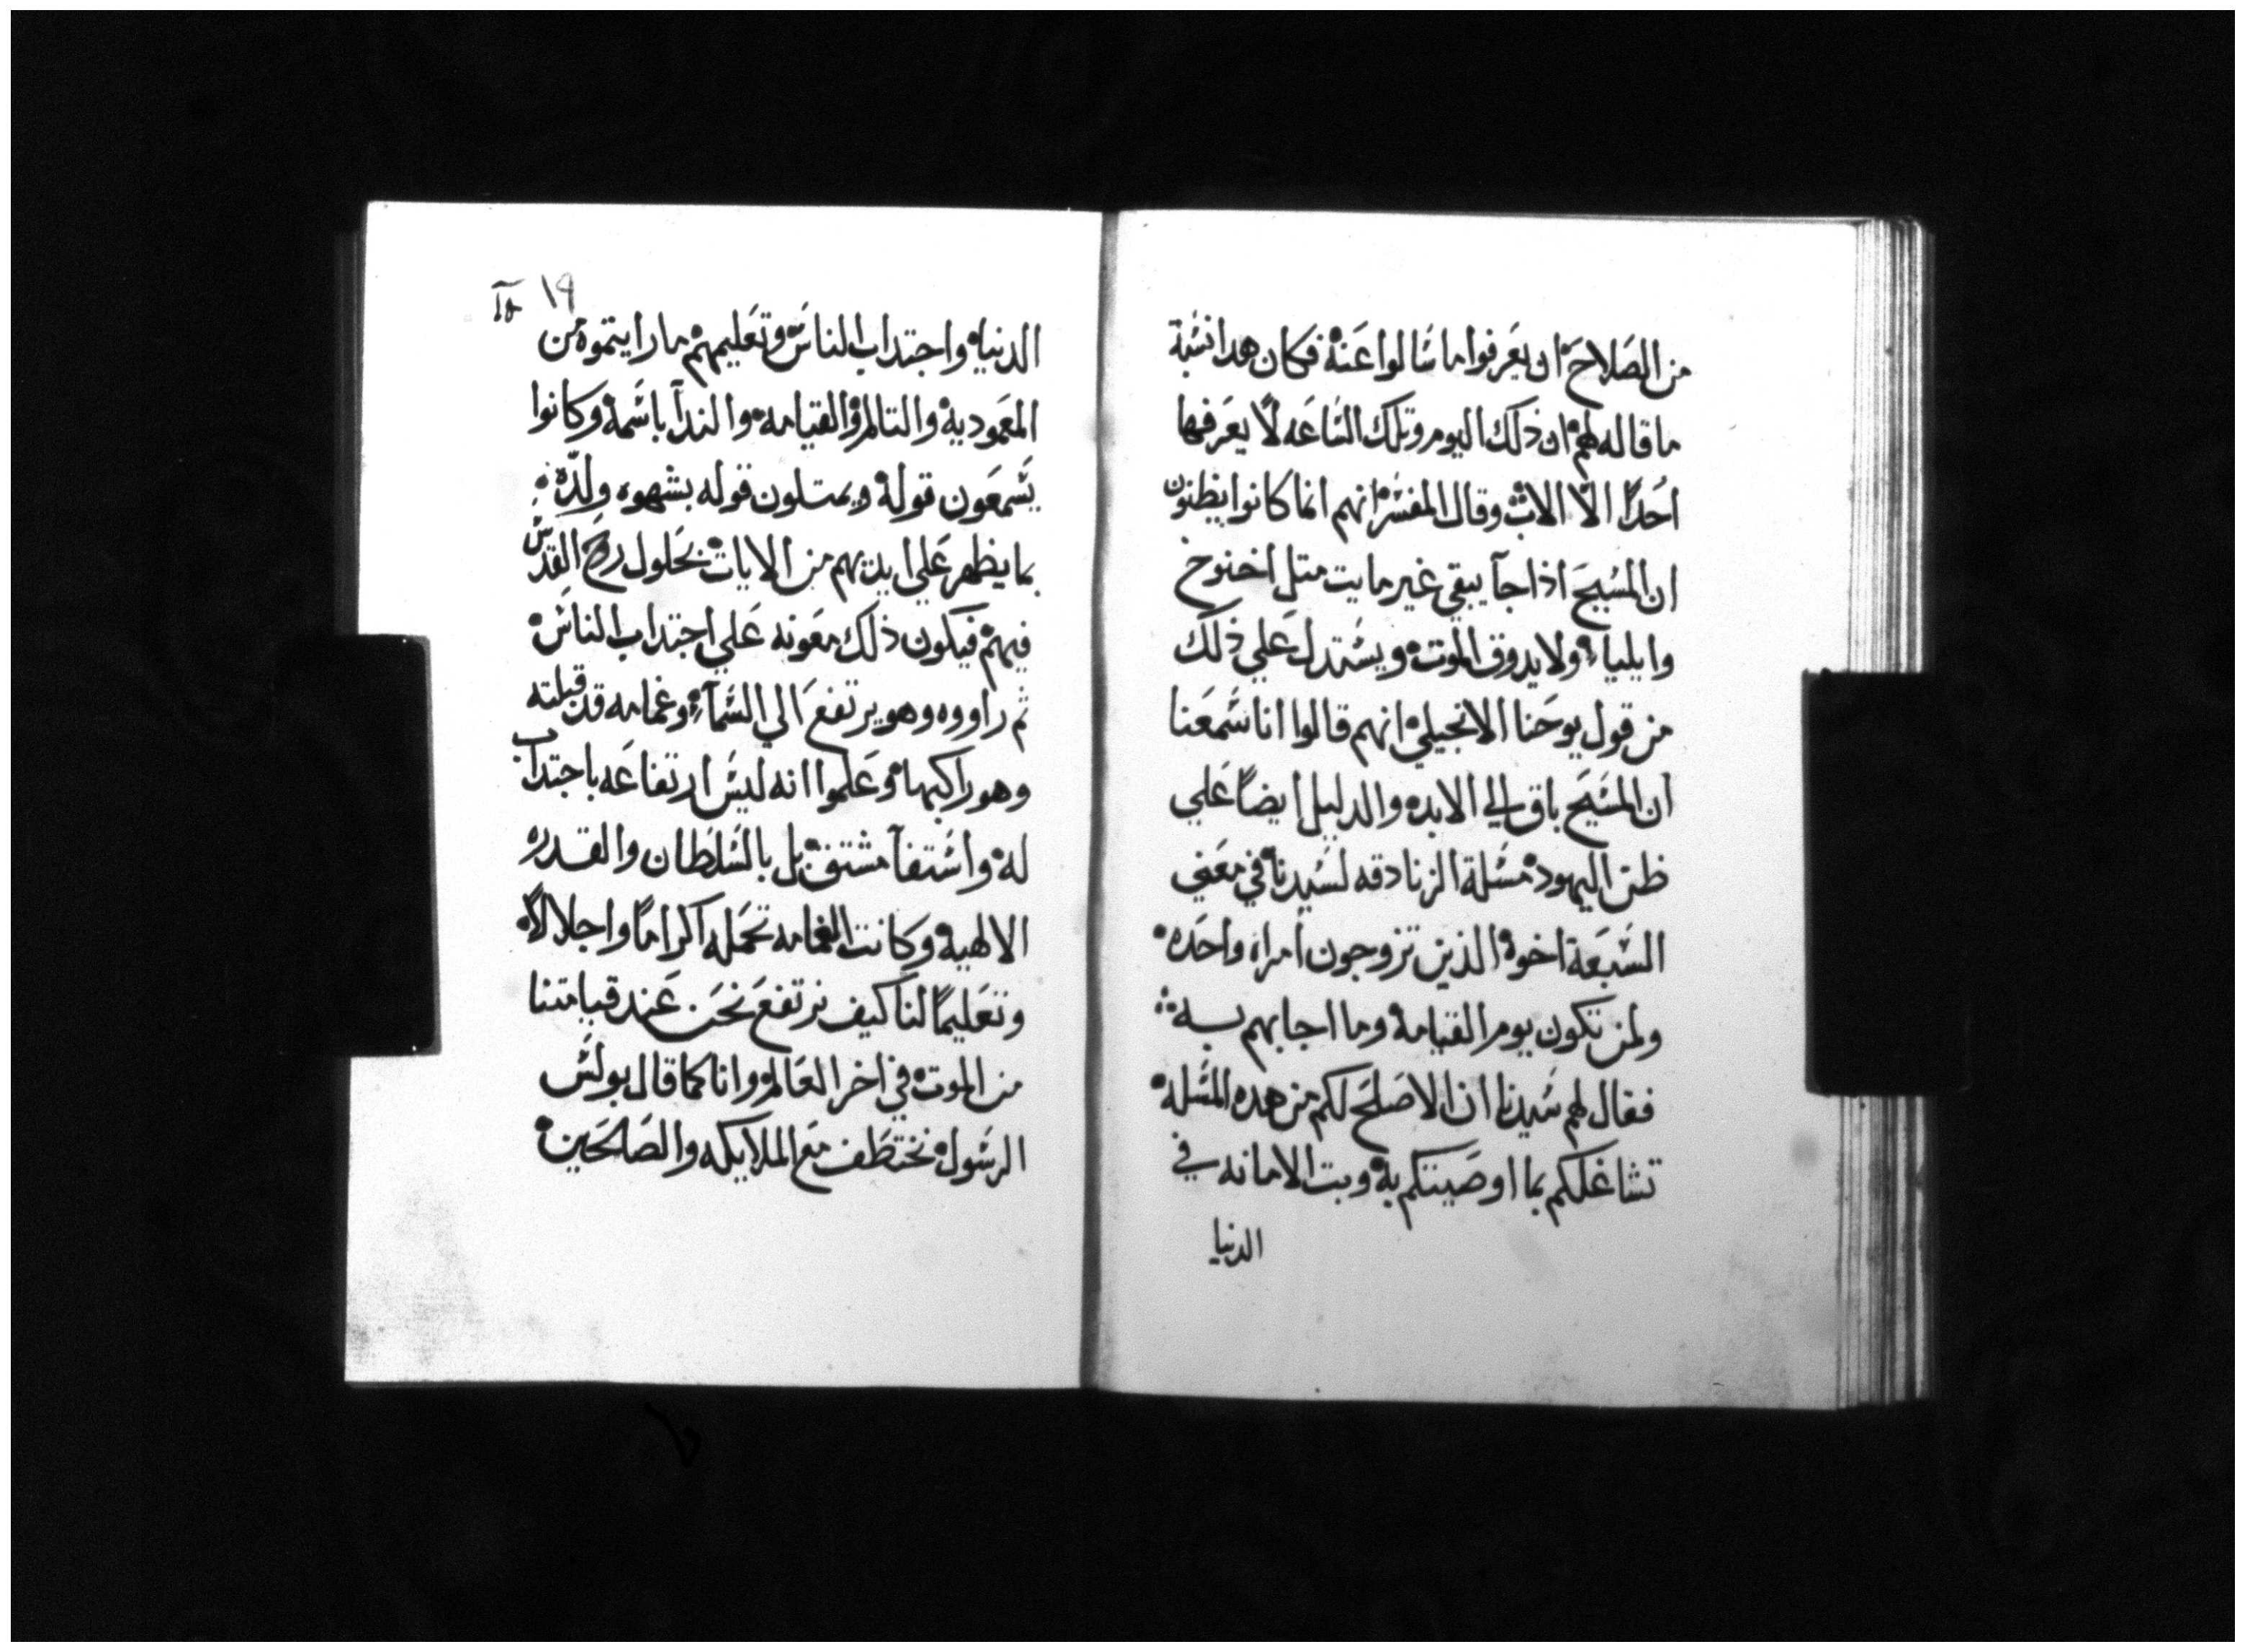 من الصلاح ان يعرفوا ما سالوا عنه فكان هدا نسبة
ما قاله لهم ان ذلك اليوم وتلك الساعه لا يعرفها
احدًا الا الاب وقال المفسر انهم انما كانوا يظنون
ان المسيح اذا جآ يبقي غير مايت متل اخنوخ
وايلياء ولا يدوق الموت ويستدل علي ذلك
من قول يوحنا الانجيلي انهم قالوا انا سمعنا
ان المسيح باق الي الابد والدليل ايضاً علي
ظن اليهود مسلة الزنادقه لسيدنا في معني
السبعة اخوة الذين تزوجون امراه واحده
ولمن تكون يوم القيامة وما اجابهم به
فقال لهم سيدنا ان الاصلح لكم من هده المسله
تشاغلكم بما اوصيتكم به وبت الامانه في
الدنيا
١٩
الدنيا واجتداب الناس وتعليمهم ما رايتموه من
المعمودية والتالم والقيامه والندآ باسمه وكانوا
يسمعون قوله ويمتلون قوله بشهوه ولدّه
بما يظهر علي ايديهم من الايات بحلول روح القدس
فيهم فيكون ذلك معونه علي اجتداب الناس
ثم راووه وهو يرتفع الي السمآء وغمامه قد قبلته
وهو راكبها وعلموا انه ليس ارتفاعه باجتداب
له واستفآ مشتف بل بالسلطان والقدره
الالهية وكانت الغمامه تحمله اكراماً واجلالاً
وتعليماً لنا كيف نرتفع نحن عند قيامتنا
من الموت في اخر العالم وانا كما قال بولس
الرسول نختطف مع الملايكه والصالحين